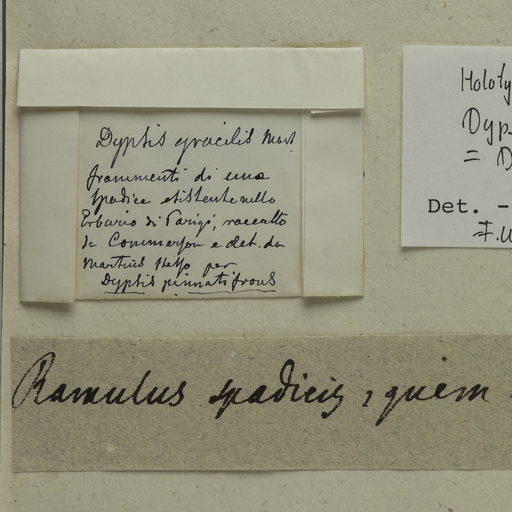 Dypsis gracilis Mart
frammenti di uno
spadice esistente nello
Erbario di Parigi, raccolto
da Commerson e det. da
Martius stesso per
Dypsis pinnatifrons
Holoty
Dyp
= D
Det. -
F. W
Ramulus spadicis, quem